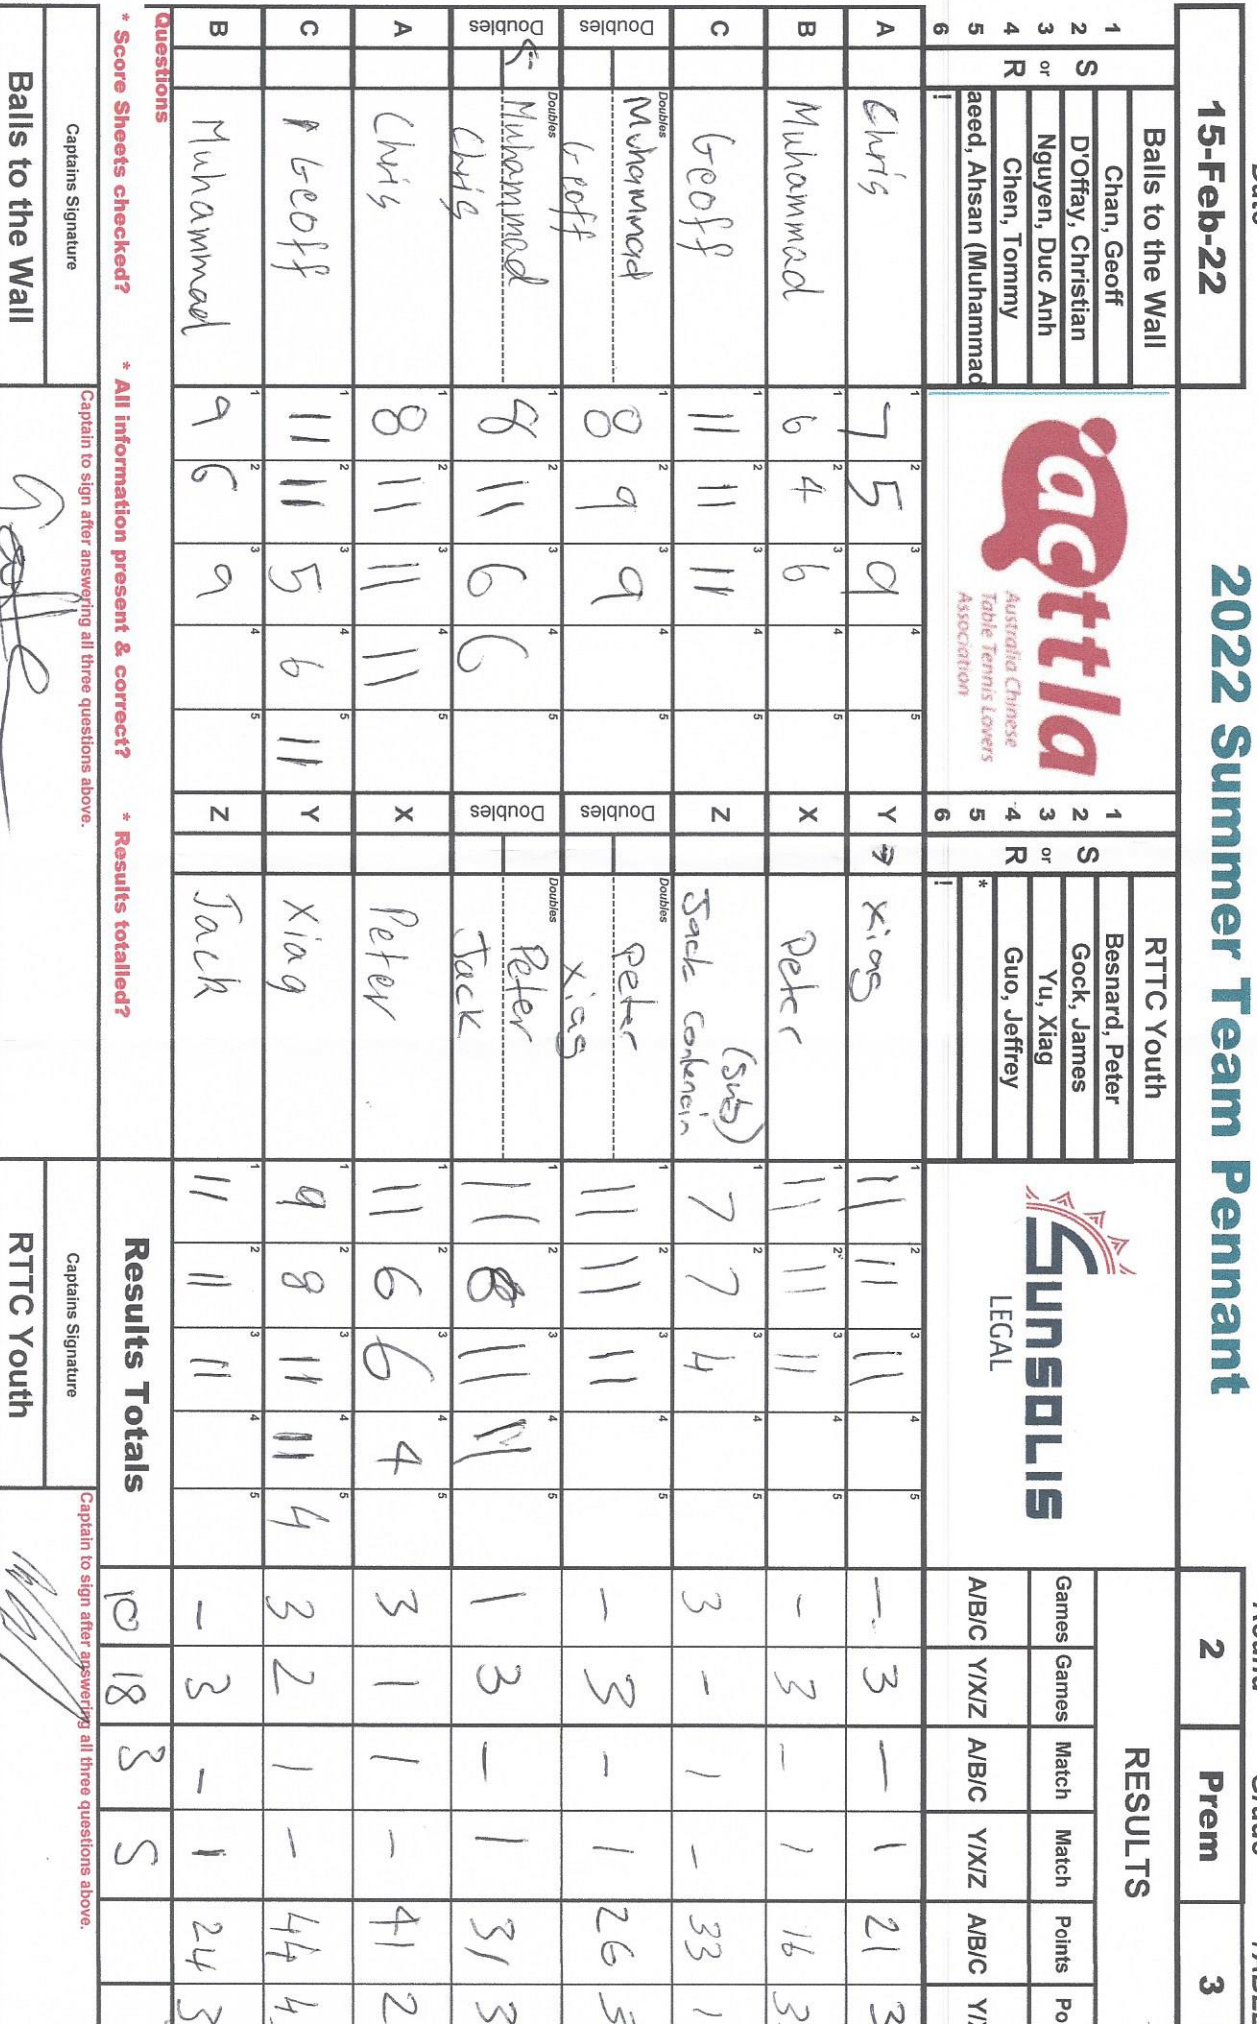 2022 Summer Team Pennant
15-Feb-22
2
Prem
3
Balls to the Wall
1 Chan, Geoff
2 S D'Offay, Christian
3 or Nguyen, Duc Anh
4 R Chen, Tommy
5 aeed, Ahsan (Muhammad
6 !
acttla
Australia Chinese
Table Tennis Lovers
Association
RTTC Youth
1 Besnard, Peter
2 S Gock, James
3 or Yu, Xiag
4 R Guo, Jeffrey
5 *
6 !
SUNSOLIS
LEGAL
RESULTS
Games Games Match Match Points Po
A/B/C Y/X/Z A/B/C Y/X/Z A/B/C Y/
A Chris 7 5 9 Y Xiag 11 11 11 - 3 - 1 21 3
B Muhammad 6 4 6 X Peter 11 11 11 - 3 - 1 16 3
C Geoff 11 11 11 Z Jack (sub) 7 7 4 3 - 1 - 33 1
Doubles Muhammad Geoff 8 9 9 Doubles Peter Xiag 11 11 11 - 3 - 1 26 3
Doubles Muhammad Chris 8 11 6 6 Doubles Peter Jack 11 8 11 11 1 3 - 1 31 3
A Chris 8 11 11 11 X Peter 11 6 6 4 3 1 1 - 41 2
C Geoff 11 11 5 6 11 Y Xiag 9 8 11 11 4 3 2 1 - 44 4
B Muhammad 9 6 9 Z Jack 11 11 11 - 3 - 1 24 3
Questions
* Score Sheets checked? * All information present & correct? * Results totalled?
Results Totals 10 18 3 5
Captains Signature
Captain to sign after answering all three questions above.
Captains Signature
Captain to sign after answering all three questions above.
Balls to the Wall
RTTC Youth